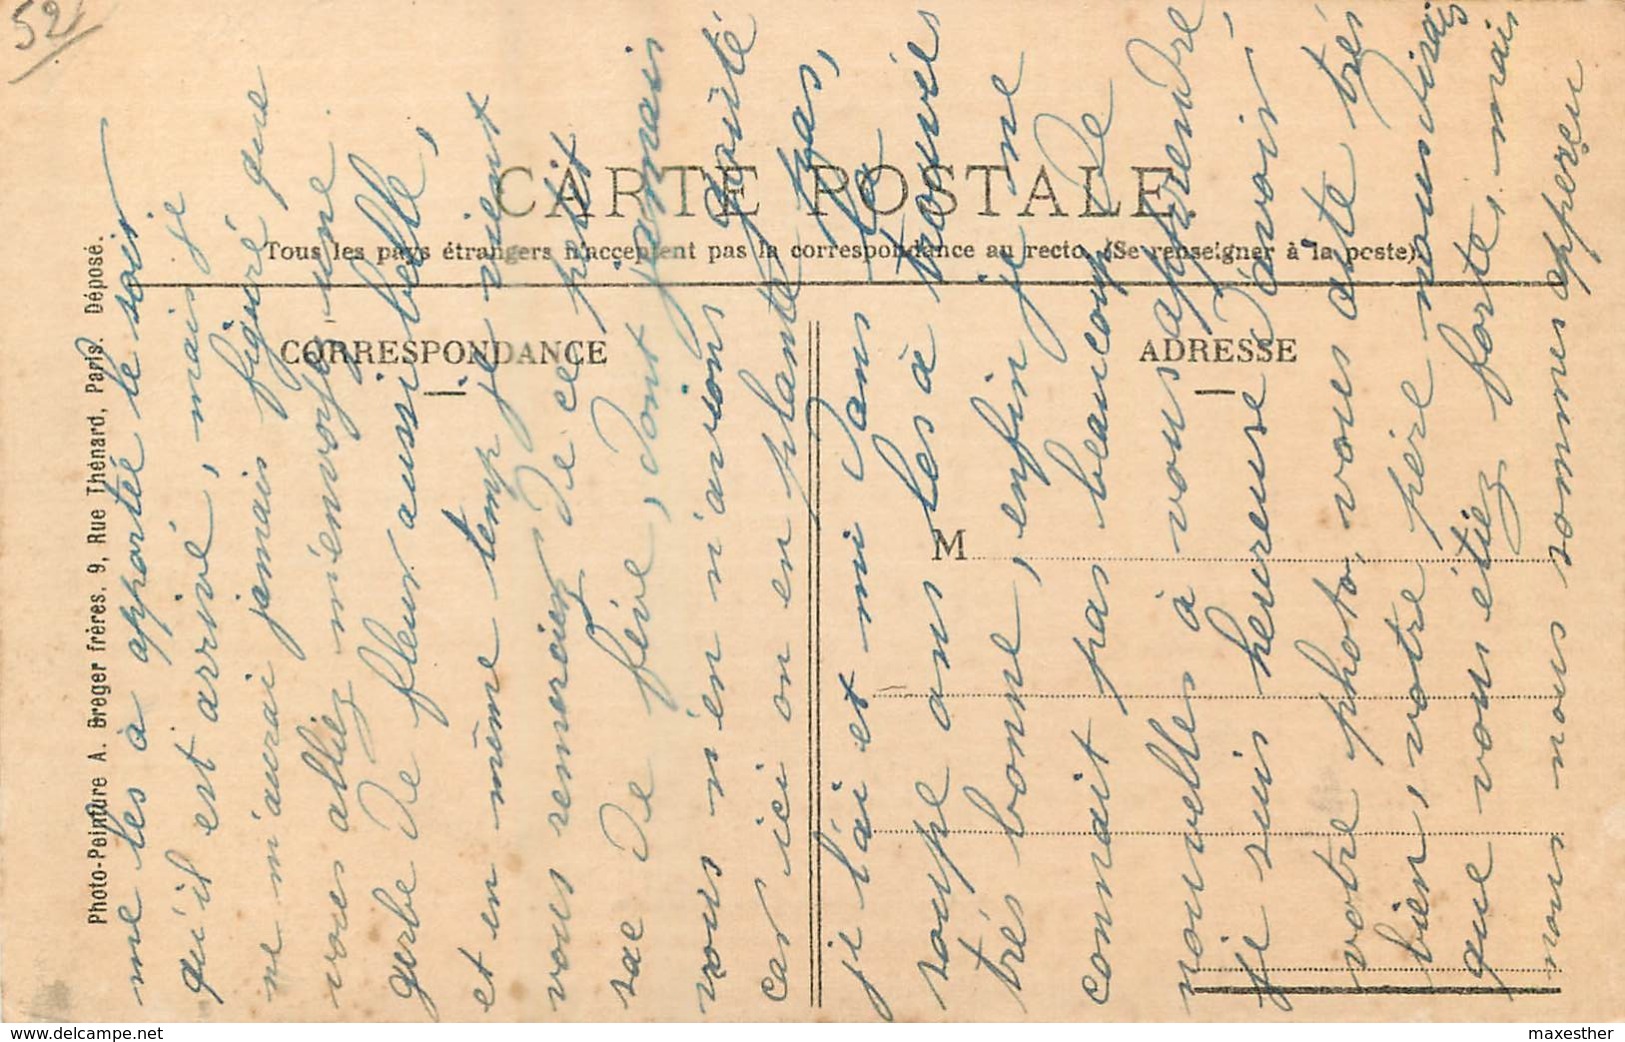 52
CARTE POSTALE
Tous les pays étrangers n'acceptent pas la correspondance au recto. (Se renseigner à la poste).
CORRESPONDANCE
ADRESSE
M
Photo-Peinture A. Breger frères, 9, Rue Thénard, Paris. Déposé.
me les à apportée le soir
qu'il est arrivé, mais je
ne m'aurai jamais figuré que
vous alliez m'envoyé une
gerbe de fleur aussi belle,
et en même temp je vient
vous remerciez de ce petit
sac de fève, dont jamais
vous n'en n'avions goûté
car ici on en plante pas,
je l'ai et mi dans la
soupe ons les à trouvés
très bonne, enfin je ne
connait pas beaucoup de
nouvelles à vous apprendre
je suis heureuse d'avoir
votre photo, vous ete très
bien, votre père nous disais
que vous étiez forte, mais
nous nous sommes apperçu
maxesther
www.delcampe.net